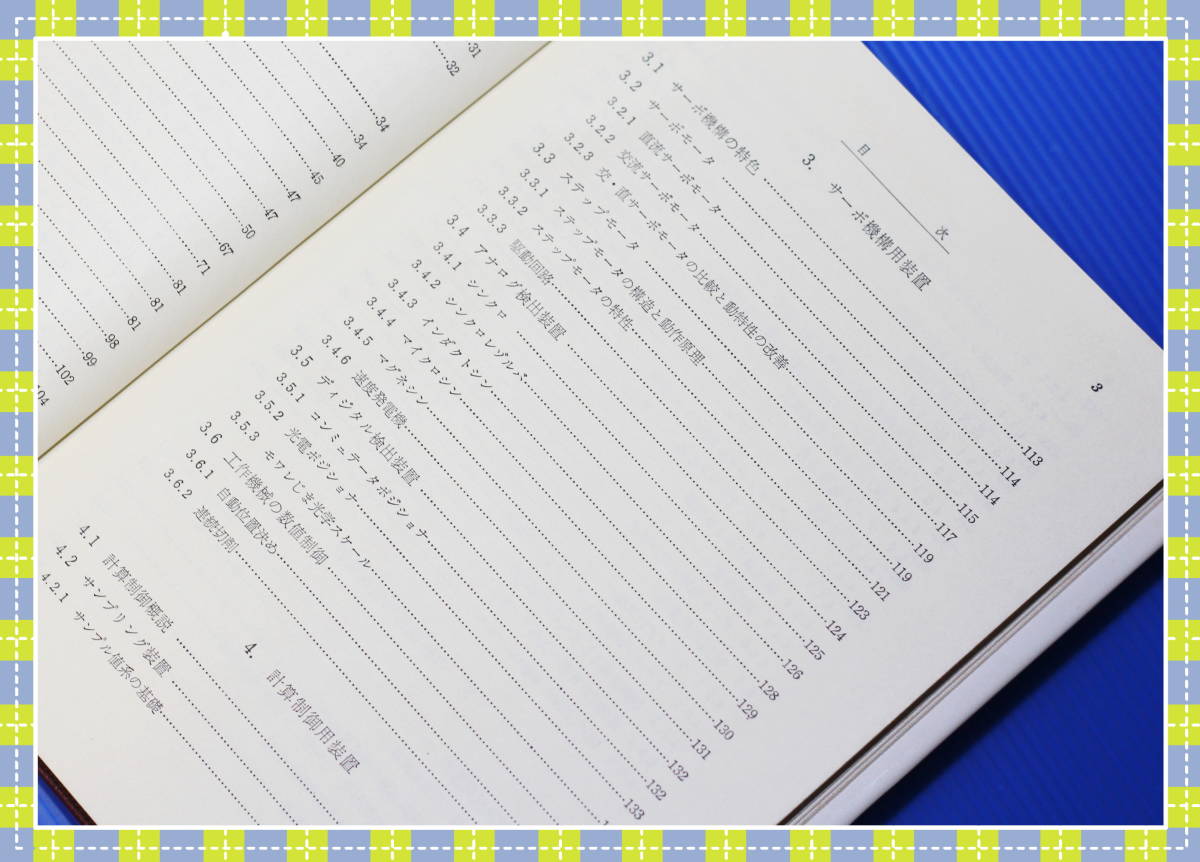 31
32
34
34
40
45
47
47
50
67
71
81
81
81
98
99
102
104
目次
3
3. サーボ機構用装置
3.1 サーボ機構の特色 113
3.2 サーボモータ 114
3.2.1 直流サーボモータ 114
3.2.2 交流サーボモータ 115
3.2.3 交・直サーボモータの比較と動特性の改善 117
3.3 ステップモータ 119
3.3.1 ステップモータの構造と動作原理 119
3.3.2 ステップモータの特性 121
3.3.3 駆動回路 123
3.4 アナログ検出装置 124
3.4.1 シンクロ 125
3.4.2 シンクロレゾルバ 126
3.4.3 インダクトシン 128
3.4.4 マイクロシン 129
3.4.5 マグネシン 130
3.4.6 速度発電機 131
3.5 ディジタル検出装置 132
3.5.1 コンミュテータポジショナ 132
3.5.2 光電ポジショナ 133
3.5.3 モワレじま光学スケール
3.6 工作機械の数値制御
3.6.1 自動位置決め
3.6.2 連続切削
4. 計算制御用装置
4.1 計算制御概説
4.2 サンプリング装置
4.2.1 サンプル値系の基礎